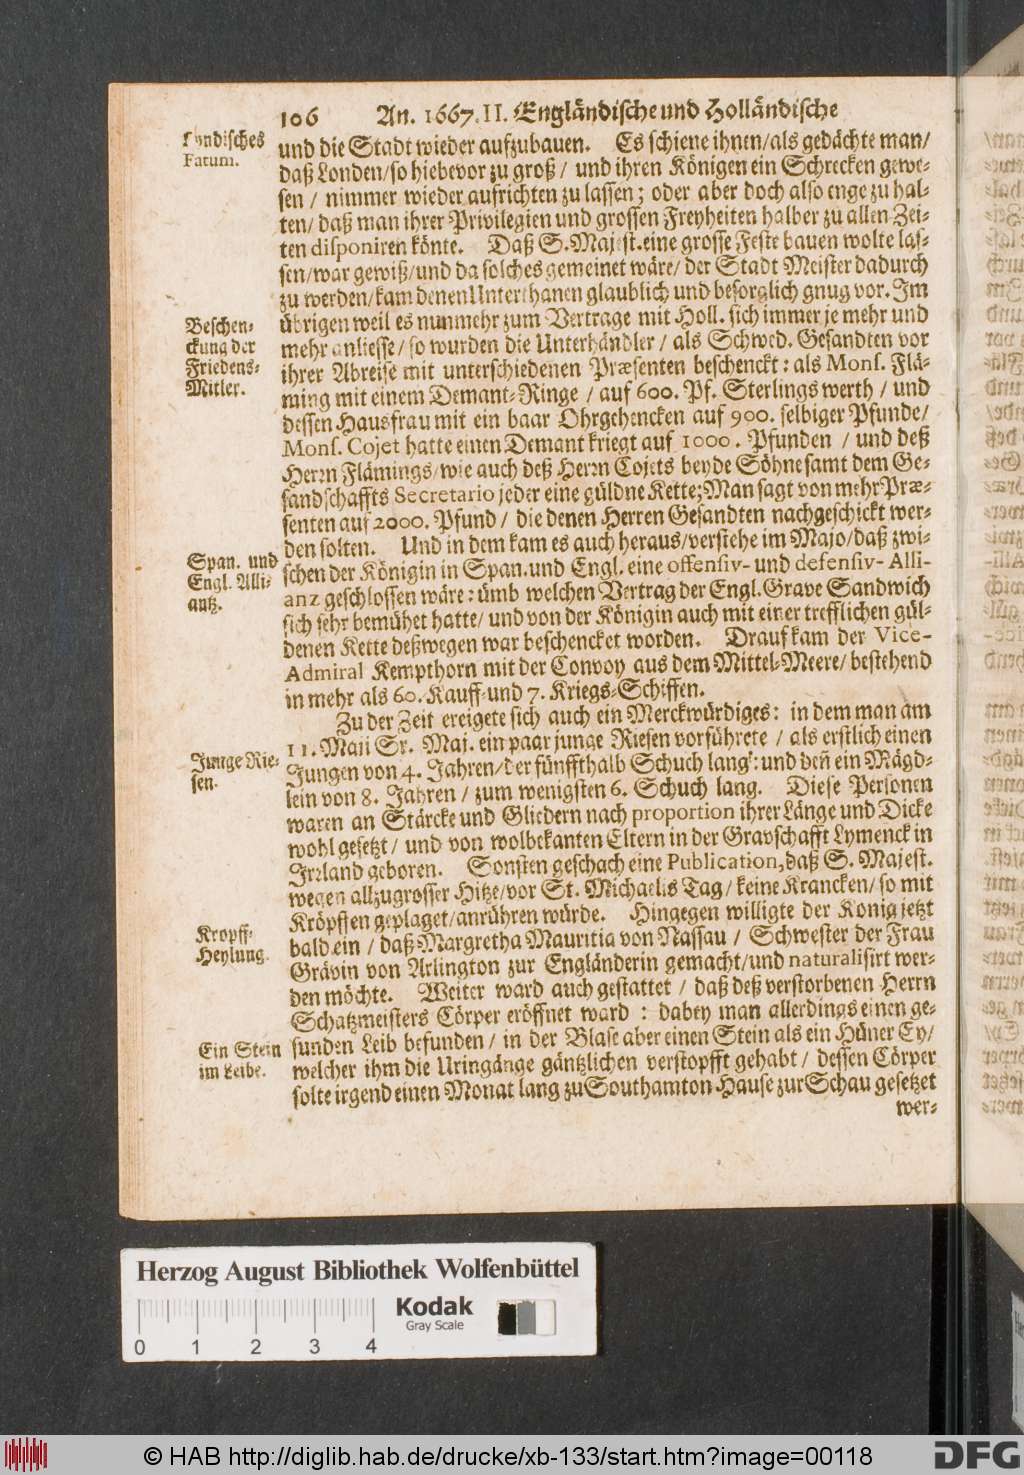 106 An. 1667. II. Engländische und Holländische
Lundisches
Fatum.
und die Stadt wieder aufzubauen. Es schiene ihnen/als gedächte man/
daß Londen/so hiebevor zu groß / und ihren Königen ein Schrecken gewe-
sen / nimmer wieder aufrichten zu lassen; oder aber doch also enge zu hal-
ten/ daß man ihrer Privilegien und grossen Freyheiten halber zu allen Zei-
ten disponiren könte. Daß S. Majest. eine grosse Feste bauen wolte las-
sen/war gewiß/und da solches gemeinet wäre/ der Stadt Meister dadurch
zu werden/kam denen Unterthanen glaublich und besorglich gnug vor. Im
Beschen-
ckung der
Friedens-
Mitler.
übrigen weil es nunmehr zum Vertrage mit Holl. sich immer je mehr und
mehr anliesse/ so wurden die Unterhändler / als Schwed. Gesandten vor
ihrer Abreise mit unterschiedenen Præsenten beschenckt: als Mons. Flä-
ming mit einem Demant-Ringe / auf 600. Pf. Sterlings werth / und
dessen Hausfrau mit ein baar Ohrgehencken auf 900. selbiger Pfunde/
Mons. Cojet hatte einen Demant kriegt auf 1000. Pfunden / und deß
Herrn Flämings/wie auch deß Herrn Cojets beyde Söhne samt dem Ge-
sandschaffts Secretario jeder eine güldne Kette; Man sagt von mehr Præ-
senten auf 2000. Pfund / die denen Herren Gesandten nachgeschickt wer-
den solten. Und in dem kam es auch heraus/verstehe im Majo/daß zwi-
Span. und
Engl. Alli-
antz.
schen der Königin in Span. und Engl. eine offensiv- und defensiv- Alli-
anz geschlossen wäre: ümb welchen Vertrag der Engl. Grave Sandwich
sich sehr bemühet hatte/ und von der Königin auch mit einer trefflichen gül-
denen Kette deßwegen war beschencket worden. Drauf kam der Vice-
Admiral Kempthorn mit der Convoy aus dem Mittel-Meere/ bestehend
in mehr als 60. Kauff- und 7. Kriegs-Schiffen.
Zu der Zeit ereigete sich auch ein Merckwürdiges: in dem man am
Junge Rie-
sen.
11. Maji Sr. Maj. ein paar junge Riesen vorführete / als erstlich einen
Jungen von 4. Jahren/der fünffthalb Schuch lang: und deñ ein Mägd-
lein von 8. Jahren / zum wenigsten 6. Schuch lang. Diese Personen
waren an Stärcke und Gliedern nach proportion ihrer Länge und Dicke
wohl gesetzt / und von wolbekanten Eltern in der Gravschafft Lymenck in
Irrland geboren. Sonsten geschach eine Publication, daß S. Majest.
wegen allzugrosser Hitze/vor St. Michaelis Tag/ keine Krancken/ so mit
Kröpffen geplaget/anrühren würde. Hingegen willigte der König jetzt
Kropff-
Heylung.
bald ein / daß Margretha Mauritia von Nassau / Schwester der Frau
Grävin von Arlington zur Engländerin gemacht/und naturalisirt wer-
den möchte. Weiter ward auch gestattet / daß deß verstorbenen Herrn
Schatzmeisters Cörper eröffnet ward : dabey man allerdings einen ge-
Ein Stein
im Leibe.
sunden Leib befunden / in der Blase aber einen Stein als ein Hüner Ey/
welcher ihm die Uringänge gäntzlichen verstopfft gehabt / dessen Cörper
solte irgend einen Monat lang zu Southamton Hause zur Schau gesetzet
wer-
Herzog August Bibliothek Wolfenbüttel
Kodak
Gray Scale
0 1 2 3 4
© HAB http://diglib.hab.de/drucke/xb-133/start.htm?image=00118
DFG